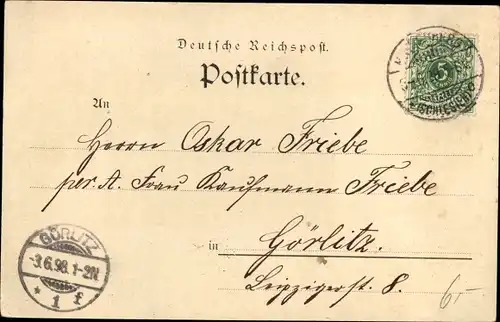 Deutsche Reichspost.
Postkarte.
5
(SCHLESIEN)
An
Herrn Oskar Friebe
per. A. Frau Kaufmann Friebe
in Görlitz.
Leipzigerst. 8.
GÖRLITZ
-3.6.98.1-2N.
* 1 f
6,-